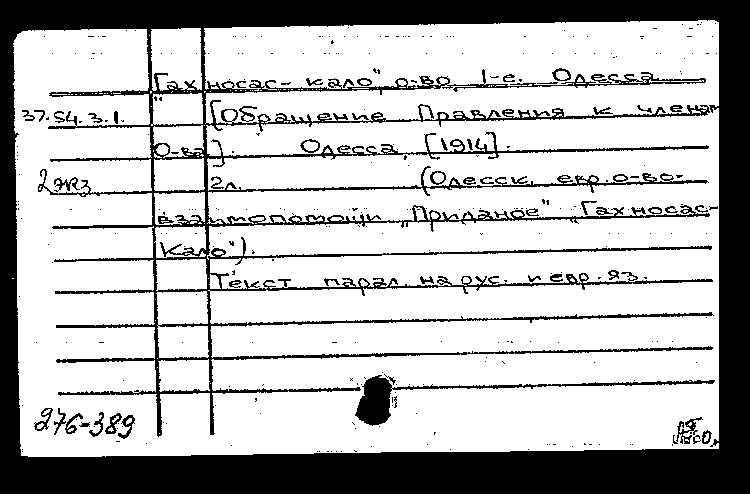 Гахносас-кало", о-во, 1-е. Одесса
37.54.3.1. " [Обращение Правления к членам
О-ва]. Одесса, [1914].
2 экз. 2 л. (Одесск. евр. о-во
взаимопомощи „Приданое" „Гахносас-
Кало").
Текст парал. на рус. и евр. яз.
276-389